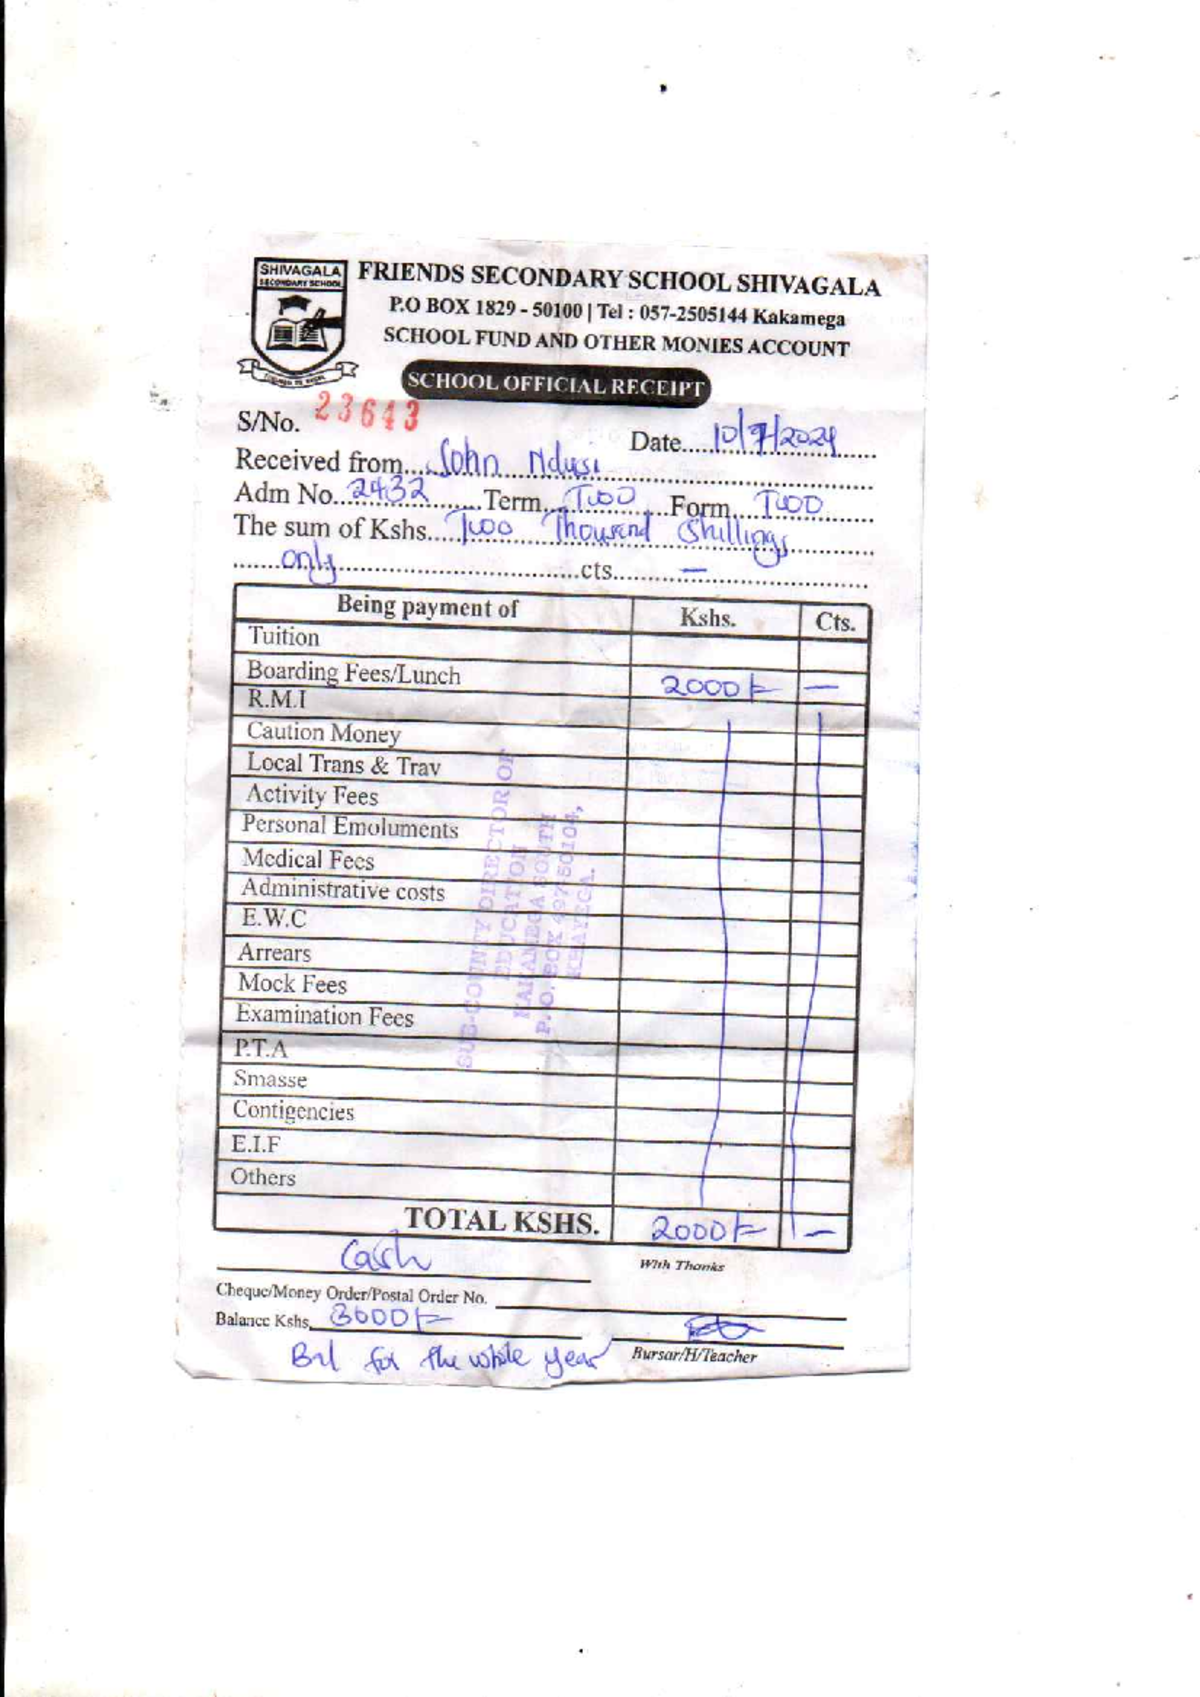 SHIVAGALA
SECONDARY SCHOOL
FRIENDS SECONDARY SCHOOL SHIVAGALA
P.O BOX 1829 - 50100 | Tel : 057-2505144 Kakamega
SCHOOL FUND AND OTHER MONIES ACCOUNT
SCHOOL OFFICIAL RECEIPT
S/No. 23643
Date....10/7/2024
Received from....John Ndusi
Adm No...2432 Term...Two Form...Two
The sum of Kshs....Two Thousand Shillings
only cts. —
Being payment of Kshs. Cts.
Tuition
Boarding Fees/Lunch 2000/= —
R.M.I
Caution Money
Local Trans & Trav
Activity Fees
Personal Emoluments
Medical Fees
Administrative costs
E.W.C
Arrears
Mock Fees
Examination Fees
P.T.A
Smasse
Contigencies
E.I.F
Others
SUB-COUNTY DIRECTOR OF
EDUCATION
KAKAMEGA SOUTH
P.O. BOX
KHAYEGA.
TOTAL KSHS. 2000/= —
Cash
With Thanks
Cheque/Money Order/Postal Order No.
Balance Kshs. 3000/=
Bursar/H/Teacher
Bal for the whole year